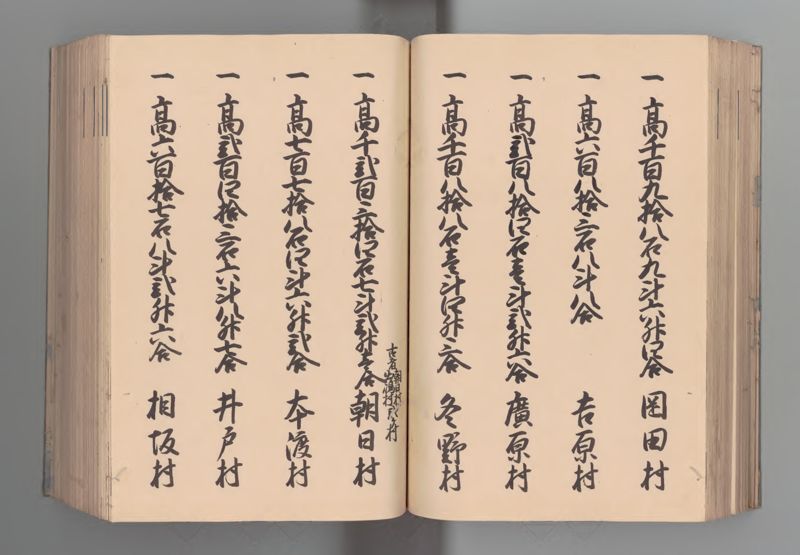 一 高千百九拾八石九斗六升四合 岡田村
一 高六百八拾三石八斗八合 吉原村
一 高弐百八拾四石壱斗弐升六合 廣原村
一 高千百八拾八石壱斗四升三合 冬野村
一 高千弐百三拾四石七斗弐升壱合 朝日村
一 高七百七拾八石四斗六升弐合 本渡村
一 高弐百四拾三石六斗八升七合 井戸村
一 高六百拾七石八斗弐升六合 相坂村